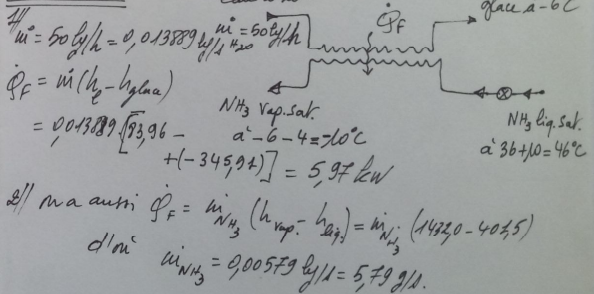 1//
ṁ = 50 kg/h = 0,013889 kg/s
ṁ H₂O = 50 kg/h
Φ̇F
glace à -6C
Φ̇F = ṁ (he - hglace)
= 0,013889 [83,96 -
+(-345,91)] = 5,97 kW
NH3 vap. sat.
à -6-4=-10°C
NH3 liq. sat.
à 36+10=46°C
2// on a aussi Φ̇F = ṁNH3 (hvap. - hliq.) = ṁNH3 (1432,0-401,5)
d'où ṁNH3 = 0,00579 kg/s = 5,79 g/s.